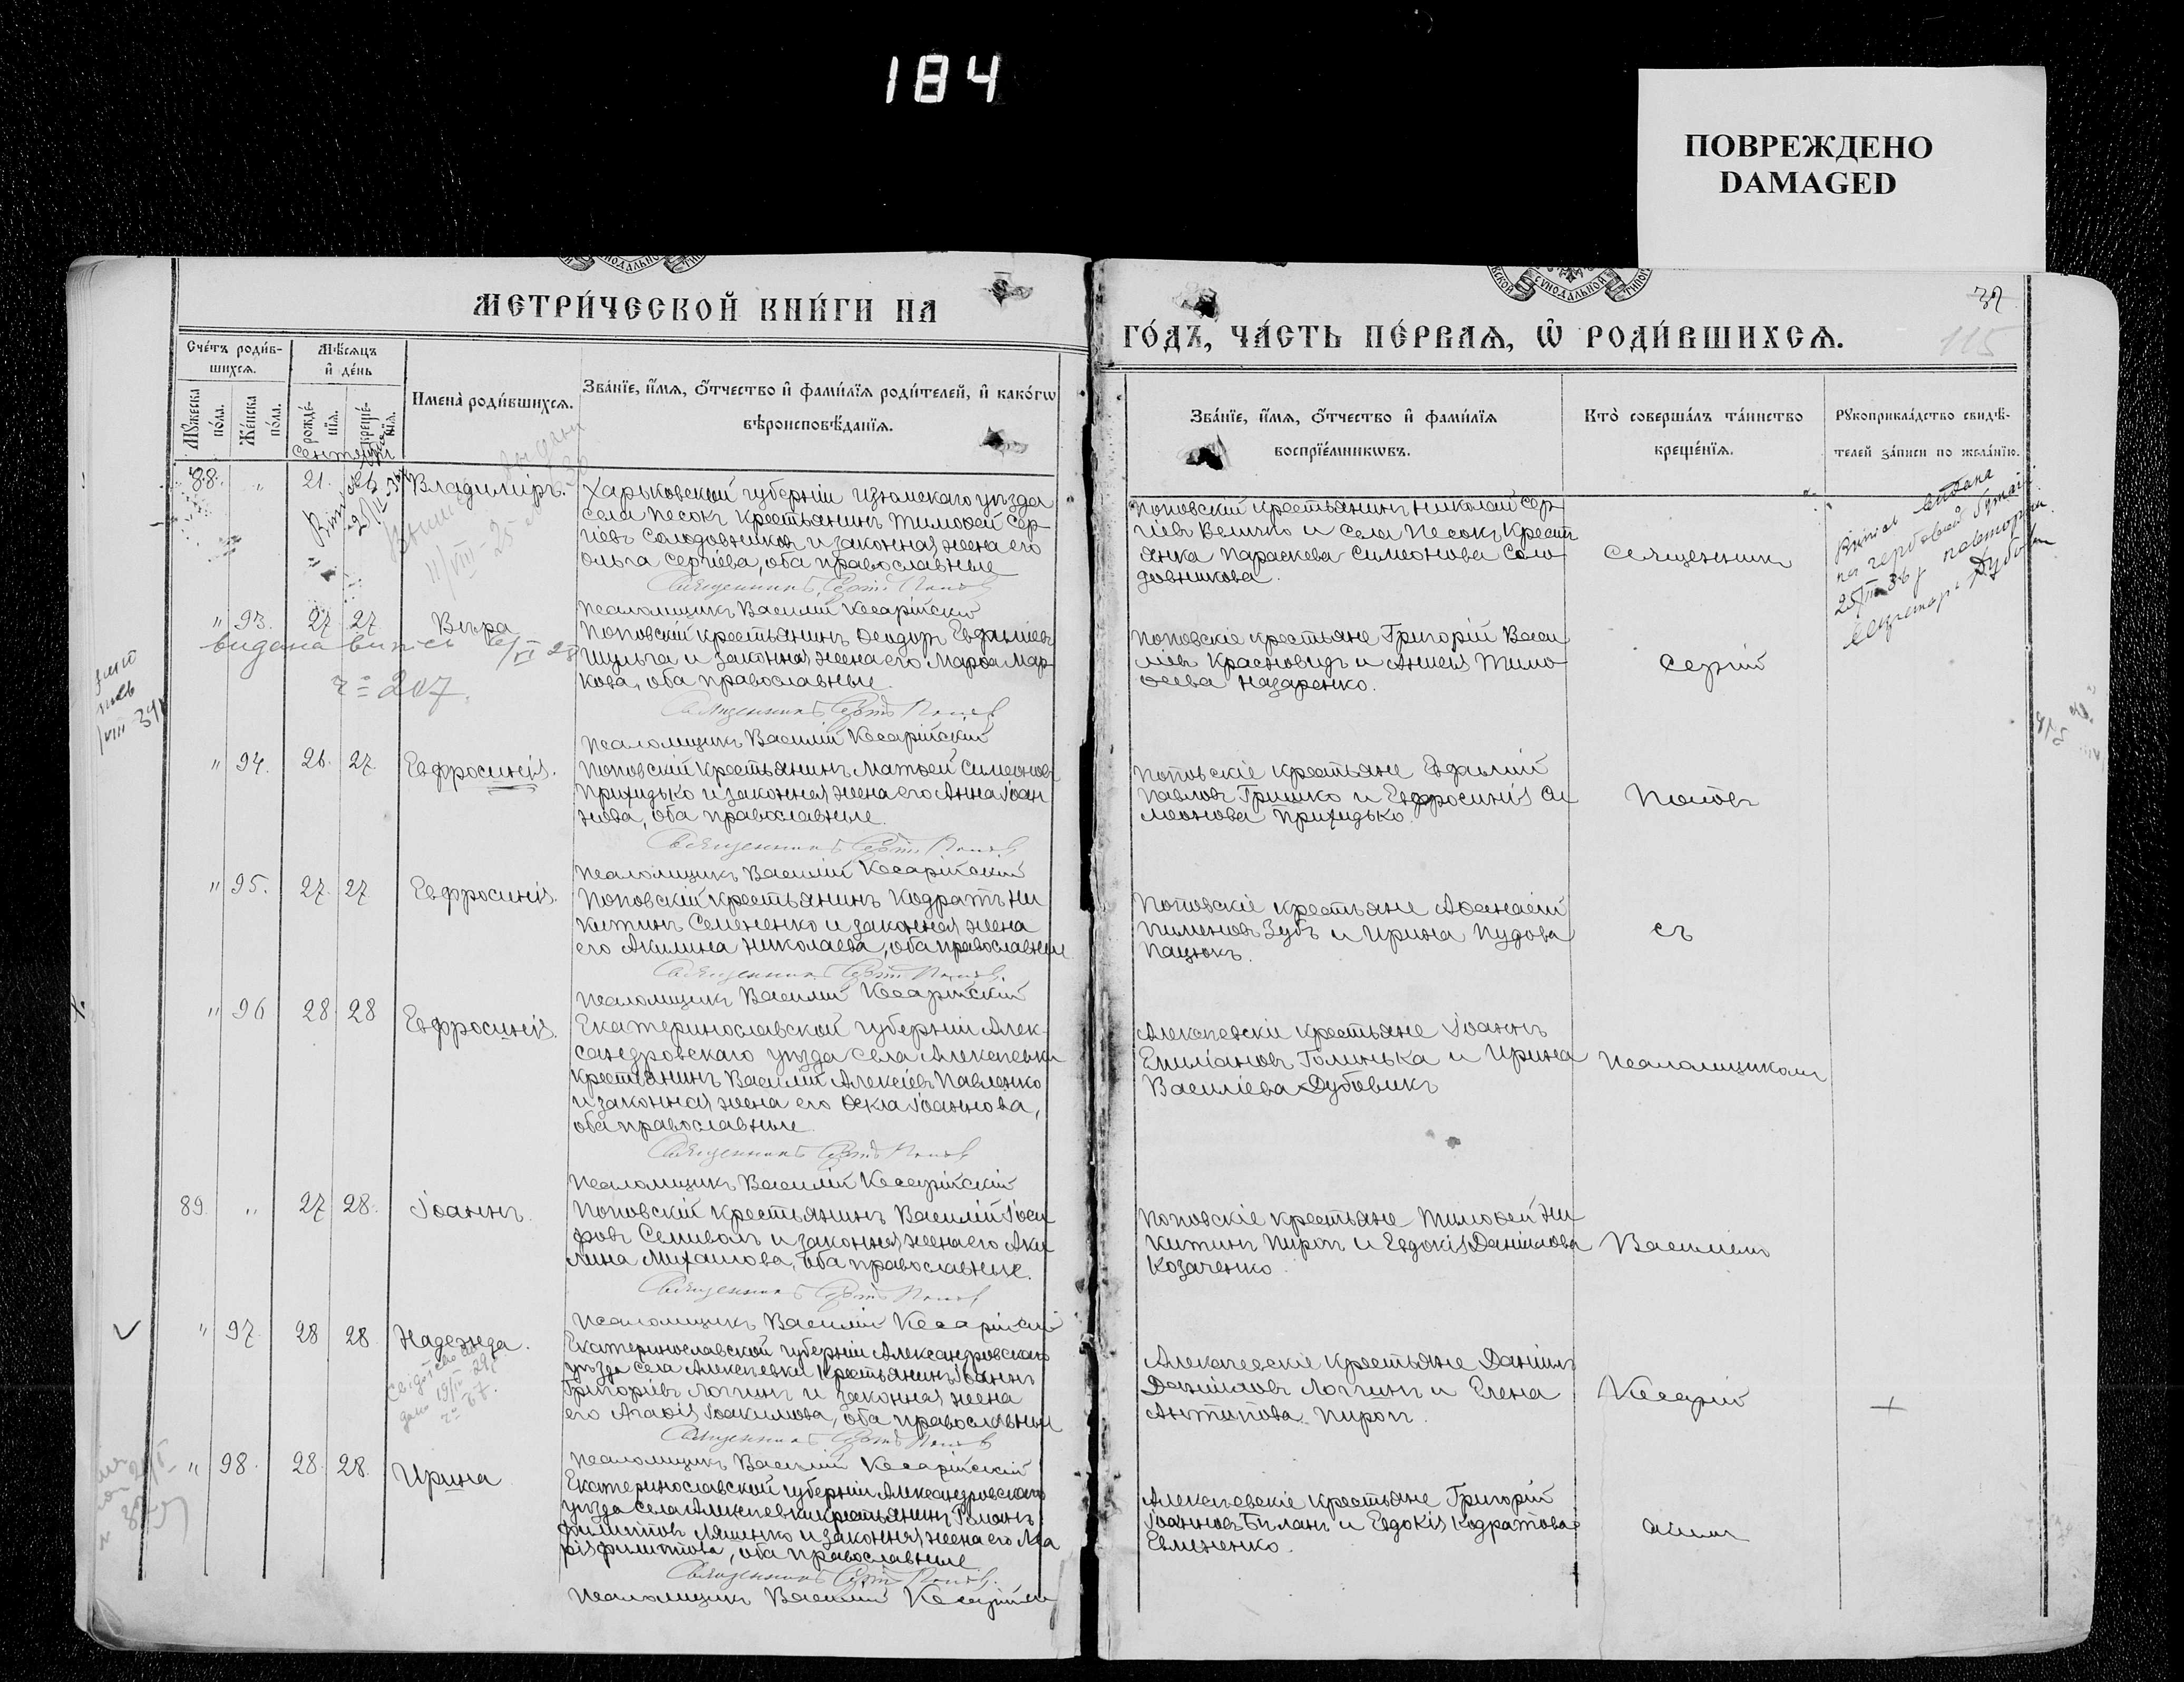 184
ПОВРЕЖДЕНО
DAMAGED
МЕТРИ́ЧЕСКОЙ КНИ́ГИ НА
ГО́ДЪ, ЧА́СТЬ ПЕ́РВАЯ, Ѡ҆ РОДИ́ВШИХСЯ.
37
115
Сче́тъ роди́в-
шихся.
Мꙋ́жеска
по́ла.
Же́нска
по́ла.
Мѣ́сяцъ
и҆ де́нь
рожде́-
нїя.
креще́-
нїя.
Сентябрь
Имена̀ роди́вшихся.
Зва́нїе, и҆́мя, ѻ҆́тчество и҆ фами́лїя роди́телей, и҆ како́гѡ
вѣроисповѣ́данїя.
Зва́нїе, и҆́мя, ѻ҆́тчество и҆ фами́лїя
воспрїе́мникѡвъ.
Кто̀ соверша́лъ та́инство
креще́нїя.
Рꙋкоприкла́дство свидѣ́-
телей за́писи по жела́нїю.
88. " 21.
Владиміръ.
Харьковской губерніи Изюмскаго уѣзда
села Песокъ крестьянинъ Тимоѳей Сер-
гіевъ Солодовниковъ и законная жена его
Ольга Сергіева, оба православные
Священникъ Сергій Поповъ
Псаломщикъ Василій Кесарійскій
Поповскій крестьянинъ Николай Сер-
гіевъ Величко и села Песокъ крест
янка Параскева Симеонова Соло-
довникова.
Священник
" 93. 27 27
Вѣра
видана випись
№ 207.
Поповскій крестьянинъ Ѳеодоръ Евдоміевъ
Шульга и законная жена его Марѳа Мар-
кова, оба православные
Священникъ Сергій Поповъ
Псаломщикъ Василій Кесарійскій
Поповскіе крестьяне Григорій Васи-
ліевъ Красновидъ и Анисія Тимо-
ѳеева Назаренко.
Сергій
" 94. 26. 27.
Евфросинія.
Поповскій крестьянинъ Матѳей Симеоновъ
Прихидько и законная жена его Анна Іоан
нова, оба православные.
Священникъ Сергій Поповъ
Псаломщикъ Василій Кесарійскій
Поповскіе крестьяне
Павловъ Гришко и Евфросинія Си
меонова Прихидько.
Поповъ
" 95. 27. 27
Евфросинія.
Поповскій крестьянинъ Кодратъ Ни
китинъ Семененко и законная жена
его Акилина Николаева, оба православные
Священникъ Сергій Поповъ.
Псаломщикъ Василій Кесарійскій
Поповскіе крестьяне Аѳанасій
Пименовъ Зубъ и Ирина Пудова
Пацюкъ.
съ
" 96 28 28
Евфросинія.
Екатеринославской губерніи Алек-
сандровскаго уѣзда села Алексѣевки
крестьянинъ Василій Алексіевъ Павленко
и законная жена его Ѳекла Іоаннова,
оба православные
Священникъ Сергій Поповъ
Псаломщикъ Василій Кесарійскій
Алексѣевскіе крестьяне Іоаннъ
Емиліановъ Голинька и Ирина
Василіева Дубовикъ
псаломщикомъ
89. " 27 28.
Іоаннъ.
Поповскій крестьянинъ Василій Іоси
фовъ Семиволъ и законная жена его Аки
лина Михаилова, оба православные.
Священникъ Сергій Поповъ
Псаломщикъ Василій Кесарійскій
Поповскіе крестьяне Тимоѳей Ни
китинъ Пирог и Евдокія Даніилова
Козаченко
Василіемъ
" 97. 28 28.
Надежда.
Екатеринославской губерніи Александровскаго
уѣзда села Алексѣевки крестьянинъ Іоаннъ
Григоріевъ Логвинъ и законная жена
его Агаѳія Іоакимова, оба православные
Священникъ Сергій Поповъ
Псаломщикъ Василій Кесарійскій
Алексѣевскіе крестьяне Даніилъ
Даніиловъ Логвинъ и Елена
Антипова Пирог.
Кесарій
" 98. 28. 28.
Ирина
Екатеринославской губерніи Александровскаго
уѣзда села Алексѣевки крестьянинъ Романъ
Филипповъ Ляшенко и законная жена его Ма
рія Филиппова, оба православные
Священникъ Сергій Поповъ.
Псаломщикъ Василій Кесарійскій
Алексѣевскіе крестьяне Григорій
Іоанновъ Биланъ и Евдокія Кодратова
Евмененко.
скимъ